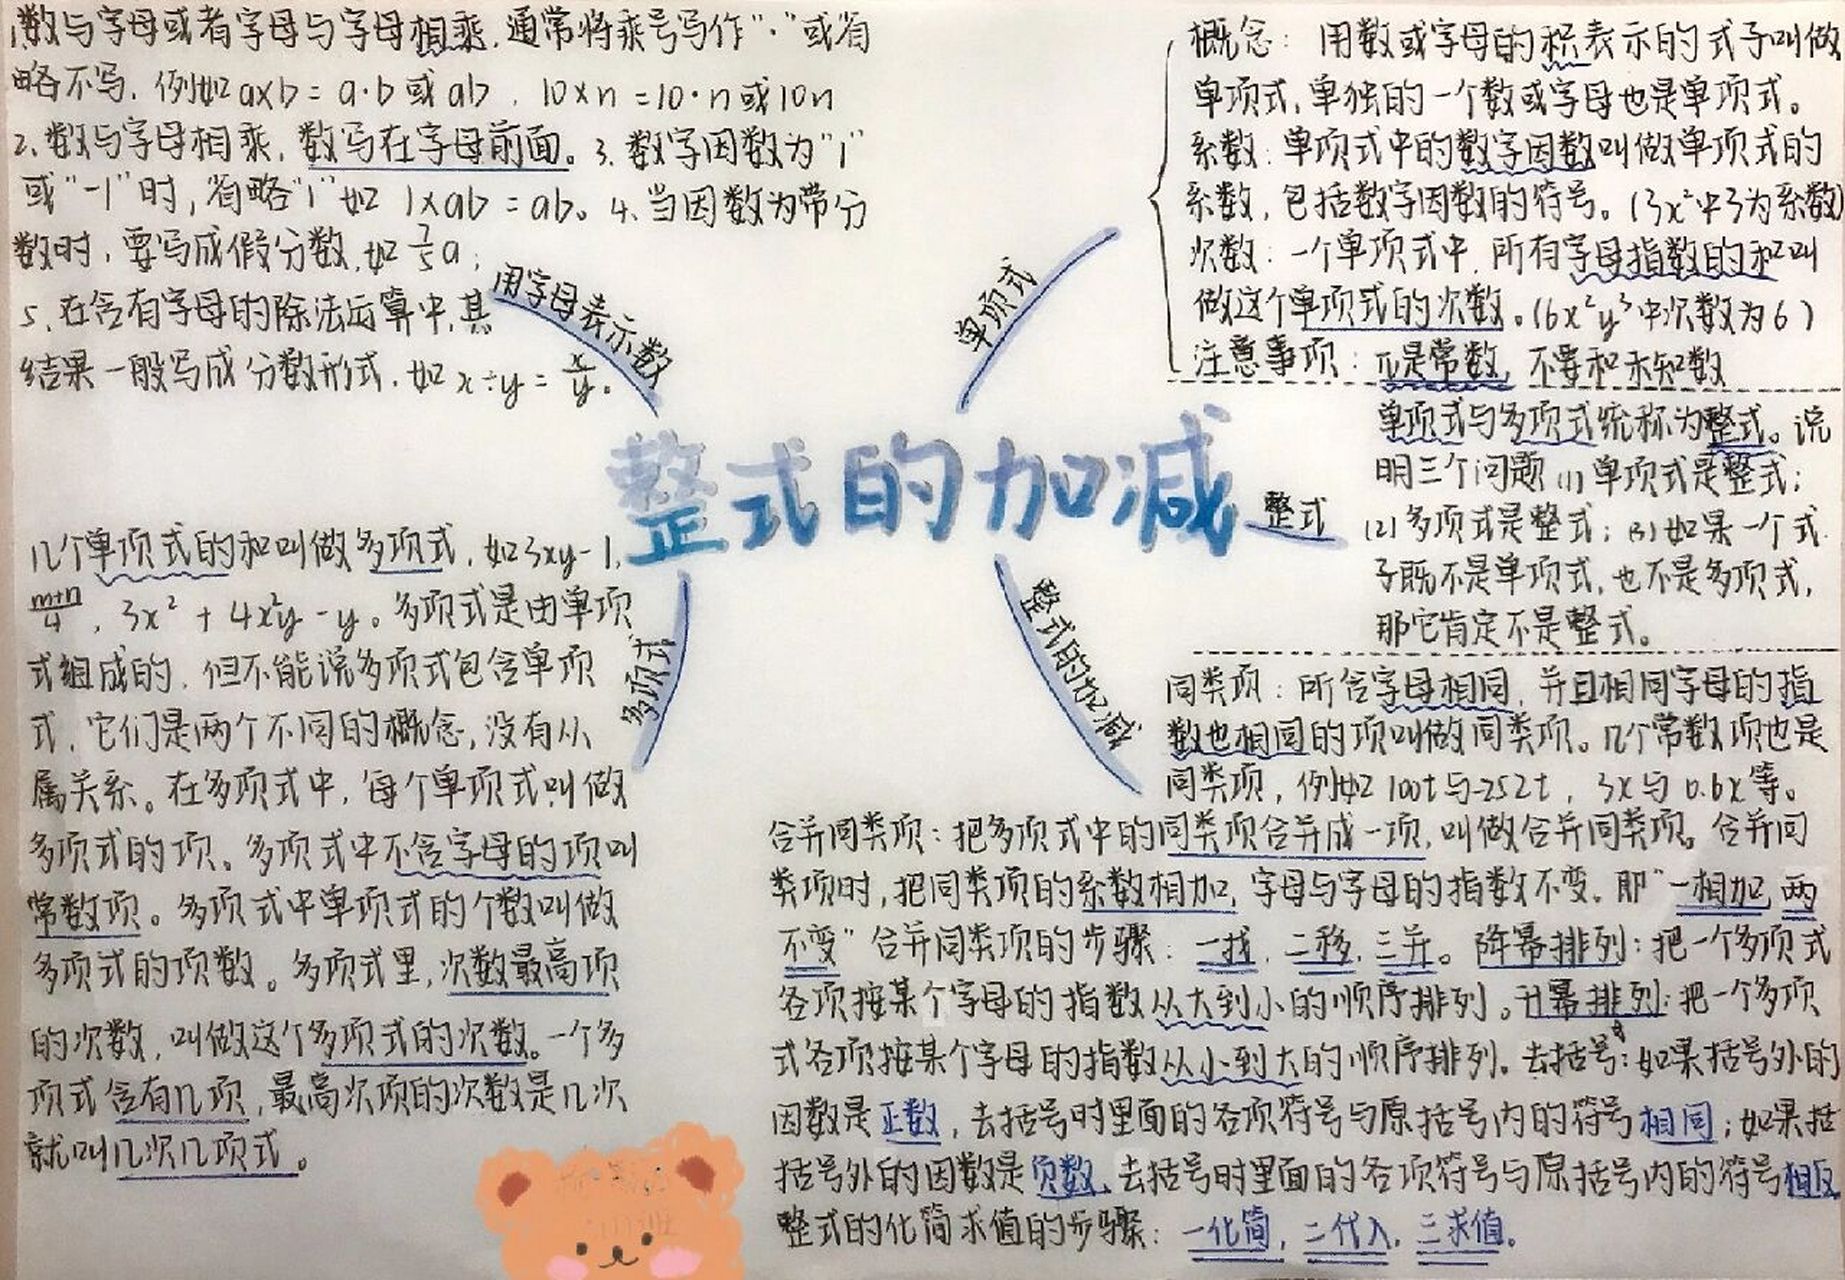 1.数与字母或者字母与字母相乘.通常将乘号写作"·"或省
略不写.例如a×b=a·b或ab.10×n=10·n或10n
2.数与字母相乘,数写在字母前面。3.数字因数为"1"
或"-1"时,省略"1"如1×ab=ab。4.当因数为带分
数时,要写成假分数.如7/5a;
5.在含有字母的除法运算中,其
结果一般写成分数形式.如x÷y=x/y。
用字母表示数
单项式
概念:用数或字母的积表示的式子叫做
单项式,单独的一个数或字母也是单项式。
系数:单项式中的数字因数叫做单项式的
系数,包括数字因数的符号。(3x²中3为系数)
次数:一个单项式中,所有字母指数的和叫
做这个单项式的次数。(6x²y³中次数为6)
注意事项:π是常数,不要和未知数
整式的加减
整式
单项式与多项式统称为整式。说
明三个问题(1)单项式是整式;
(2)多项式是整式;(3)如果一个式
子既不是单项式,也不是多项式,
那它肯定不是整式。
多项式
几个单项式的和叫做多项式,如3xy-1,
m+n/4,3x²+4x²y-y。多项式是由单项
式组成的,但不能说多项式包含单项
式,它们是两个不同的概念,没有从
属关系。在多项式中,每个单项式叫做
多项式的项。多项式中不含字母的项叫
常数项。多项式中单项式的个数叫做
多项式的项数。多项式里,次数最高项
的次数,叫做这个多项式的次数。一个多
项式含有几项,最高次项的次数是几次
就叫几次几项式。
整式的加减
同类项:所含字母相同,并且相同字母的指
数也相同的项叫做同类项。几个常数项也是
同类项,例如100t与-252t,3x与0.6x等。
合并同类项:把多项式中的同类项合并成一项,叫做合并同类项。合并同
类项时,把同类项的系数相加,字母与字母的指数不变。即"一相加,两
不变"合并同类项的步骤:一找,二移,三并。降幂排列:把一个多项式
各项按某个字母的指数从大到小的顺序排列。升幂排列:把一个多项
式各项按某个字母的指数从小到大的顺序排列。去括号:如果括号外的
因数是正数,去括号时里面的各项符号与原括号内的符号相同;如果括
括号外的因数是负数,去括号时里面的各项符号与原括号内的符号相反
整式的化简求值的步骤:一化简,二代入,三求值。